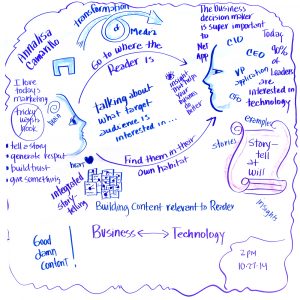 Annalisa
Camarillo
Transformation
of Media
The Business
decision maker
is super important
to
Net
App
CIO
CEO
VP
application
CFO
Today
90% of
Leaders
are
interested in
technology
Go to where the
Reader Is
I love
today's
marketing
tricky
ways to
hook
talking about
what target
audience is
interested in...
brain
heart
tell a story
generate respect
build trust
give something
Find them in their
own habitat
integrated
story-
telling
Building Content relevant to Reader
example
stories
Story-
tell
at
Will
insights
Business ↔ Technology
Good
damn
content!
2 PM
10-27-14